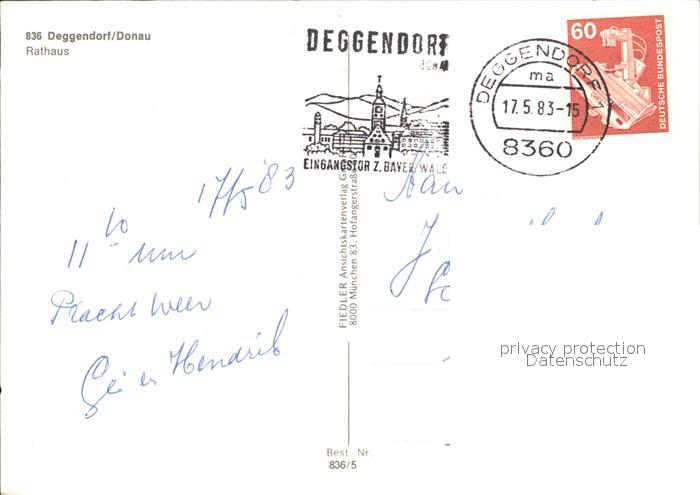 836 Deggendorf/Donau
Rathaus
DEGGENDORF
EINGANGSTOR Z. BAYER. WALD
DEGGENDORF 1
ma
17.5.83-15
8360
60
DEUTSCHE BUNDESPOST
17/5 '83
11 10 uur
Pracht weer
Hendrik
FIEDLER Ansichtskartenverlag
8000 München 83, Hofangerstraße
privacy protection
Datenschutz
Best. Nr.
836/5